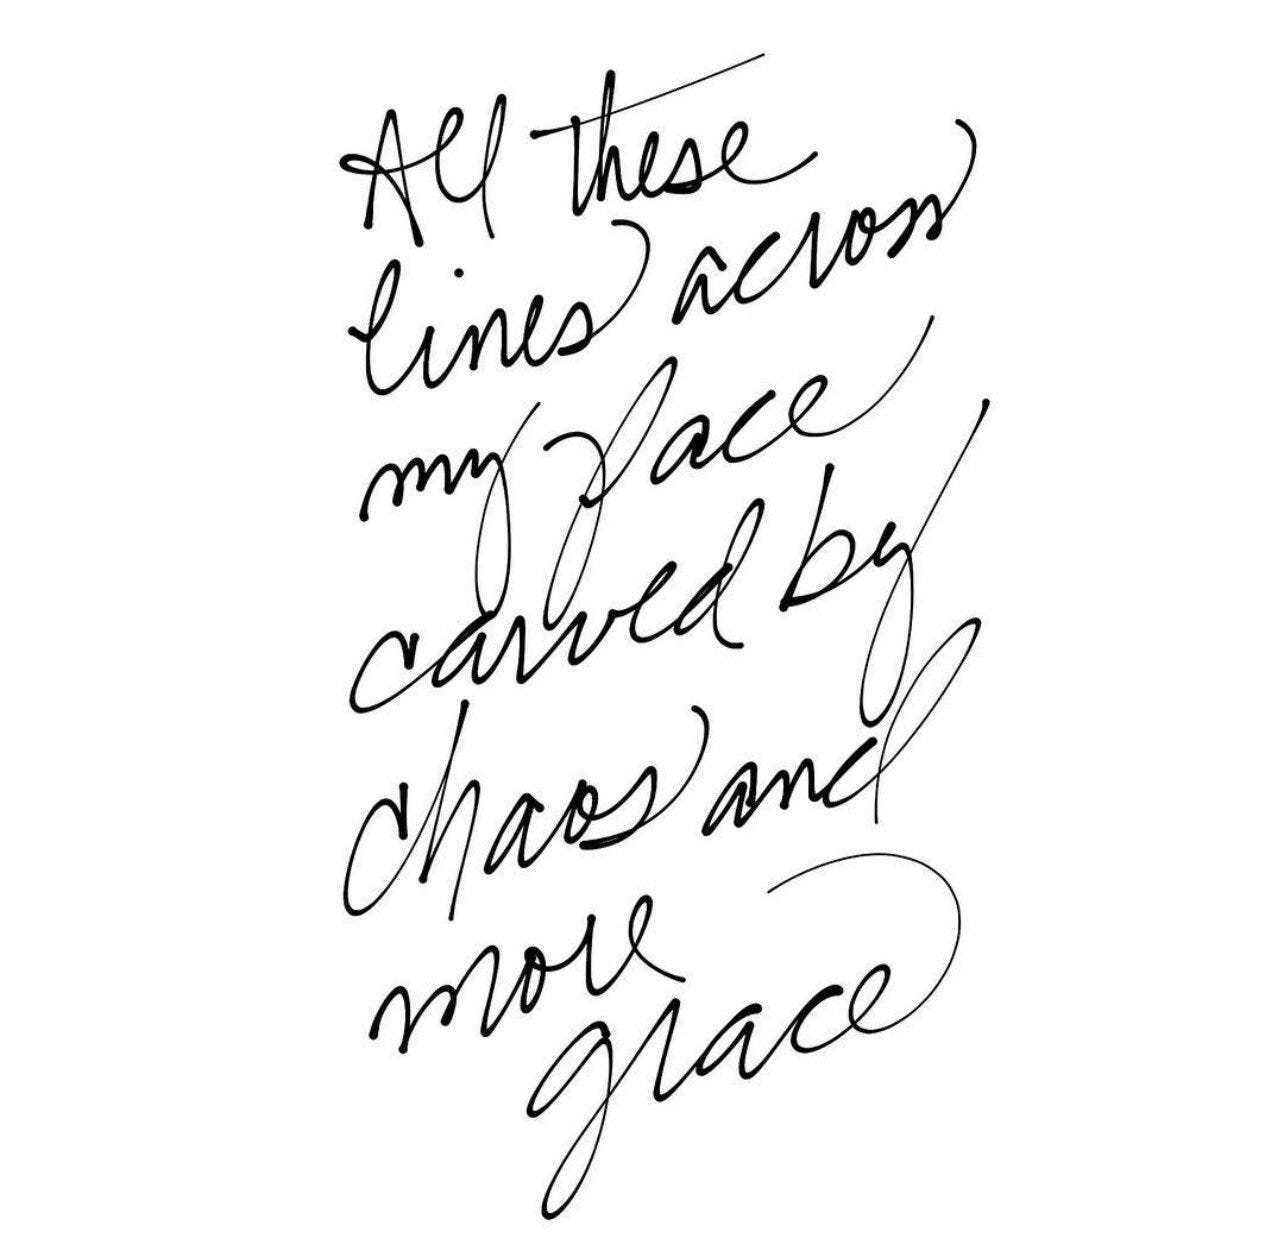 All these
lines across
my face
carved by
chaos and
more
grace